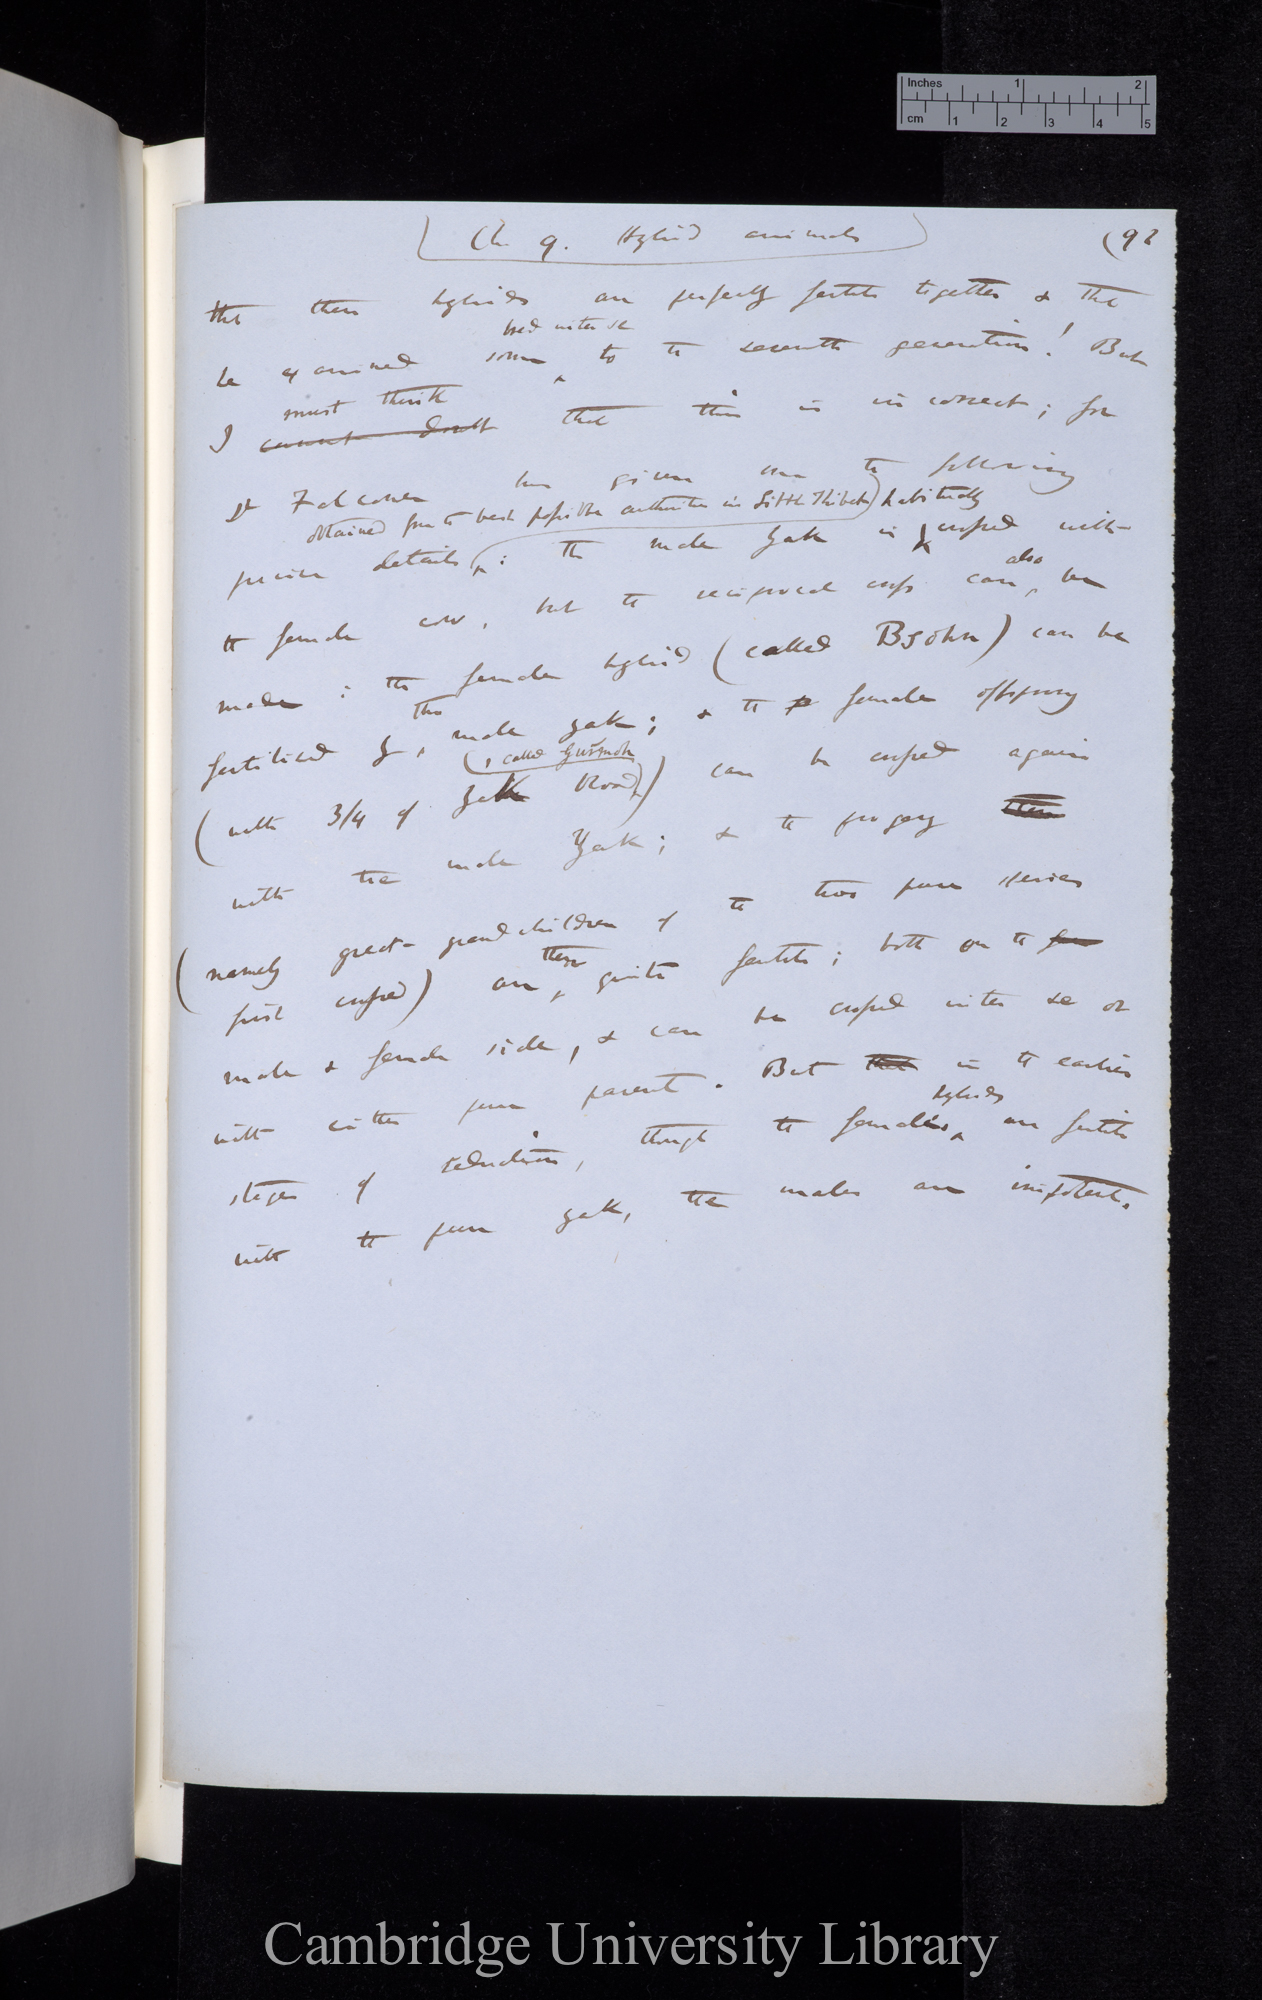 Inches 1 2
cm 1 2 3 4 5
Ch. 9. Hybrid animals (92
that these hybrids are perfectly fertile together & that
bred inter se
he examined some to the seventh generation! But
must think
I cannot doubt that this is incorrect; for
Dr Falconer has given me the following
obtained from the best possible authorities in Little Thibet) habitually
precise details: the male Yak is crossed with
also
the female cow, but the reciprocal cross can be
made: the female hybrid (called Bzohn) can be
the
fertilised by male yak; & the female offspring
(, called Gurmoh
(with 3/4 of Yak blood) can be crossed again
with the male Yak; & the progeny
(namely great-grandchildren of the two pure species
these
first crossed) are quite fertile; both on the
male & female side, & can be crossed inter se or
with either pure parent. But that in the earlier
hybrids
stages of reduction, though the females are fertile
with the pure yak, the males are impotent.
Cambridge University Library